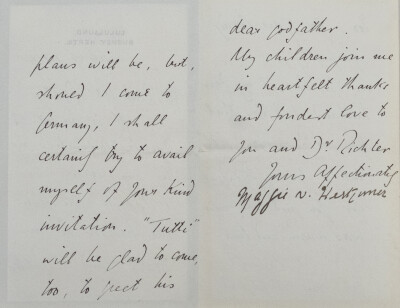 plans will be, but,
should I come to
Germany, I shall
certainly try to avail
myself of your kind
invitation. "Tutti"
will be glad to come,
too, to greet his
dear godfather.
My children join me
in heartfelt thanks
and fondest love to
you and Dr Richter
Yours affectionately
Maggie v.